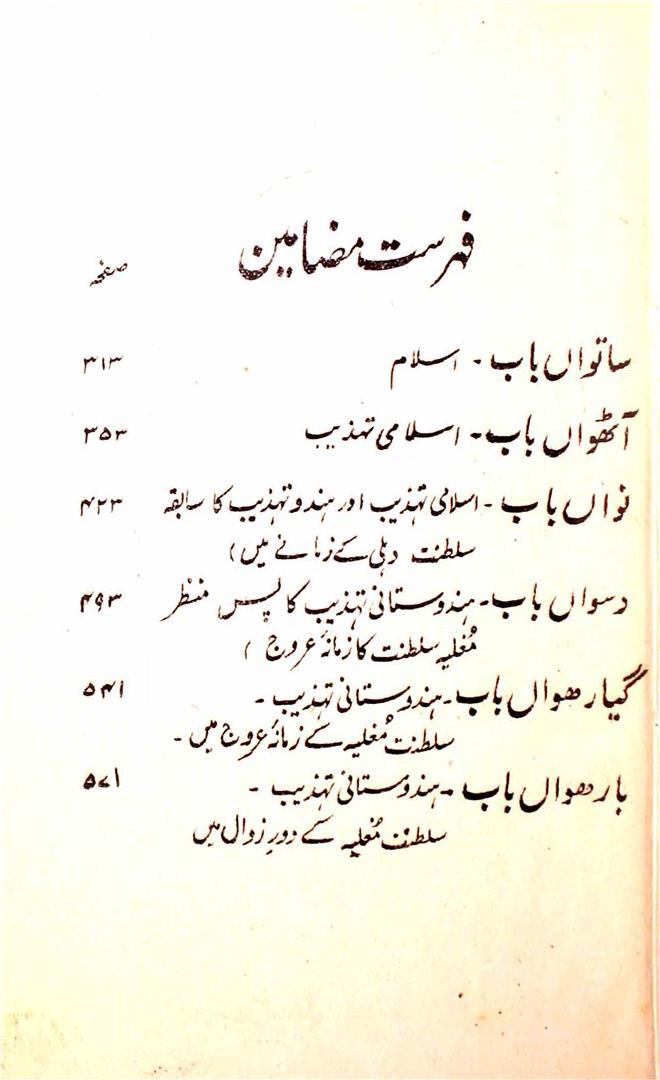 فہرست مضامین
صفحہ
ساتواں باب - اسلام ۳۱۳
آٹھواں باب - اسلامی تہذیب ۳۵۳
نواں باب - اسلامی تہذیب اور ہندو تہذیب کا سابقہ ۴۲۳
سلطنت دہلی کے زمانے میں)
دسواں باب - ہندوستانی تہذیب کا پس منظر ۴۹۳
مُغلیہ سلطنت کا زمانۂ عروج )
گیارھواں باب - ہندوستانی تہذیب - ۵۴۱
سلطنت مُغلیہ کے زمانۂ عروج میں -
بارھواں باب - ہندوستانی تہذیب - ۵۷۱
سلطنت مُغلیہ کے دورِ زوال میں